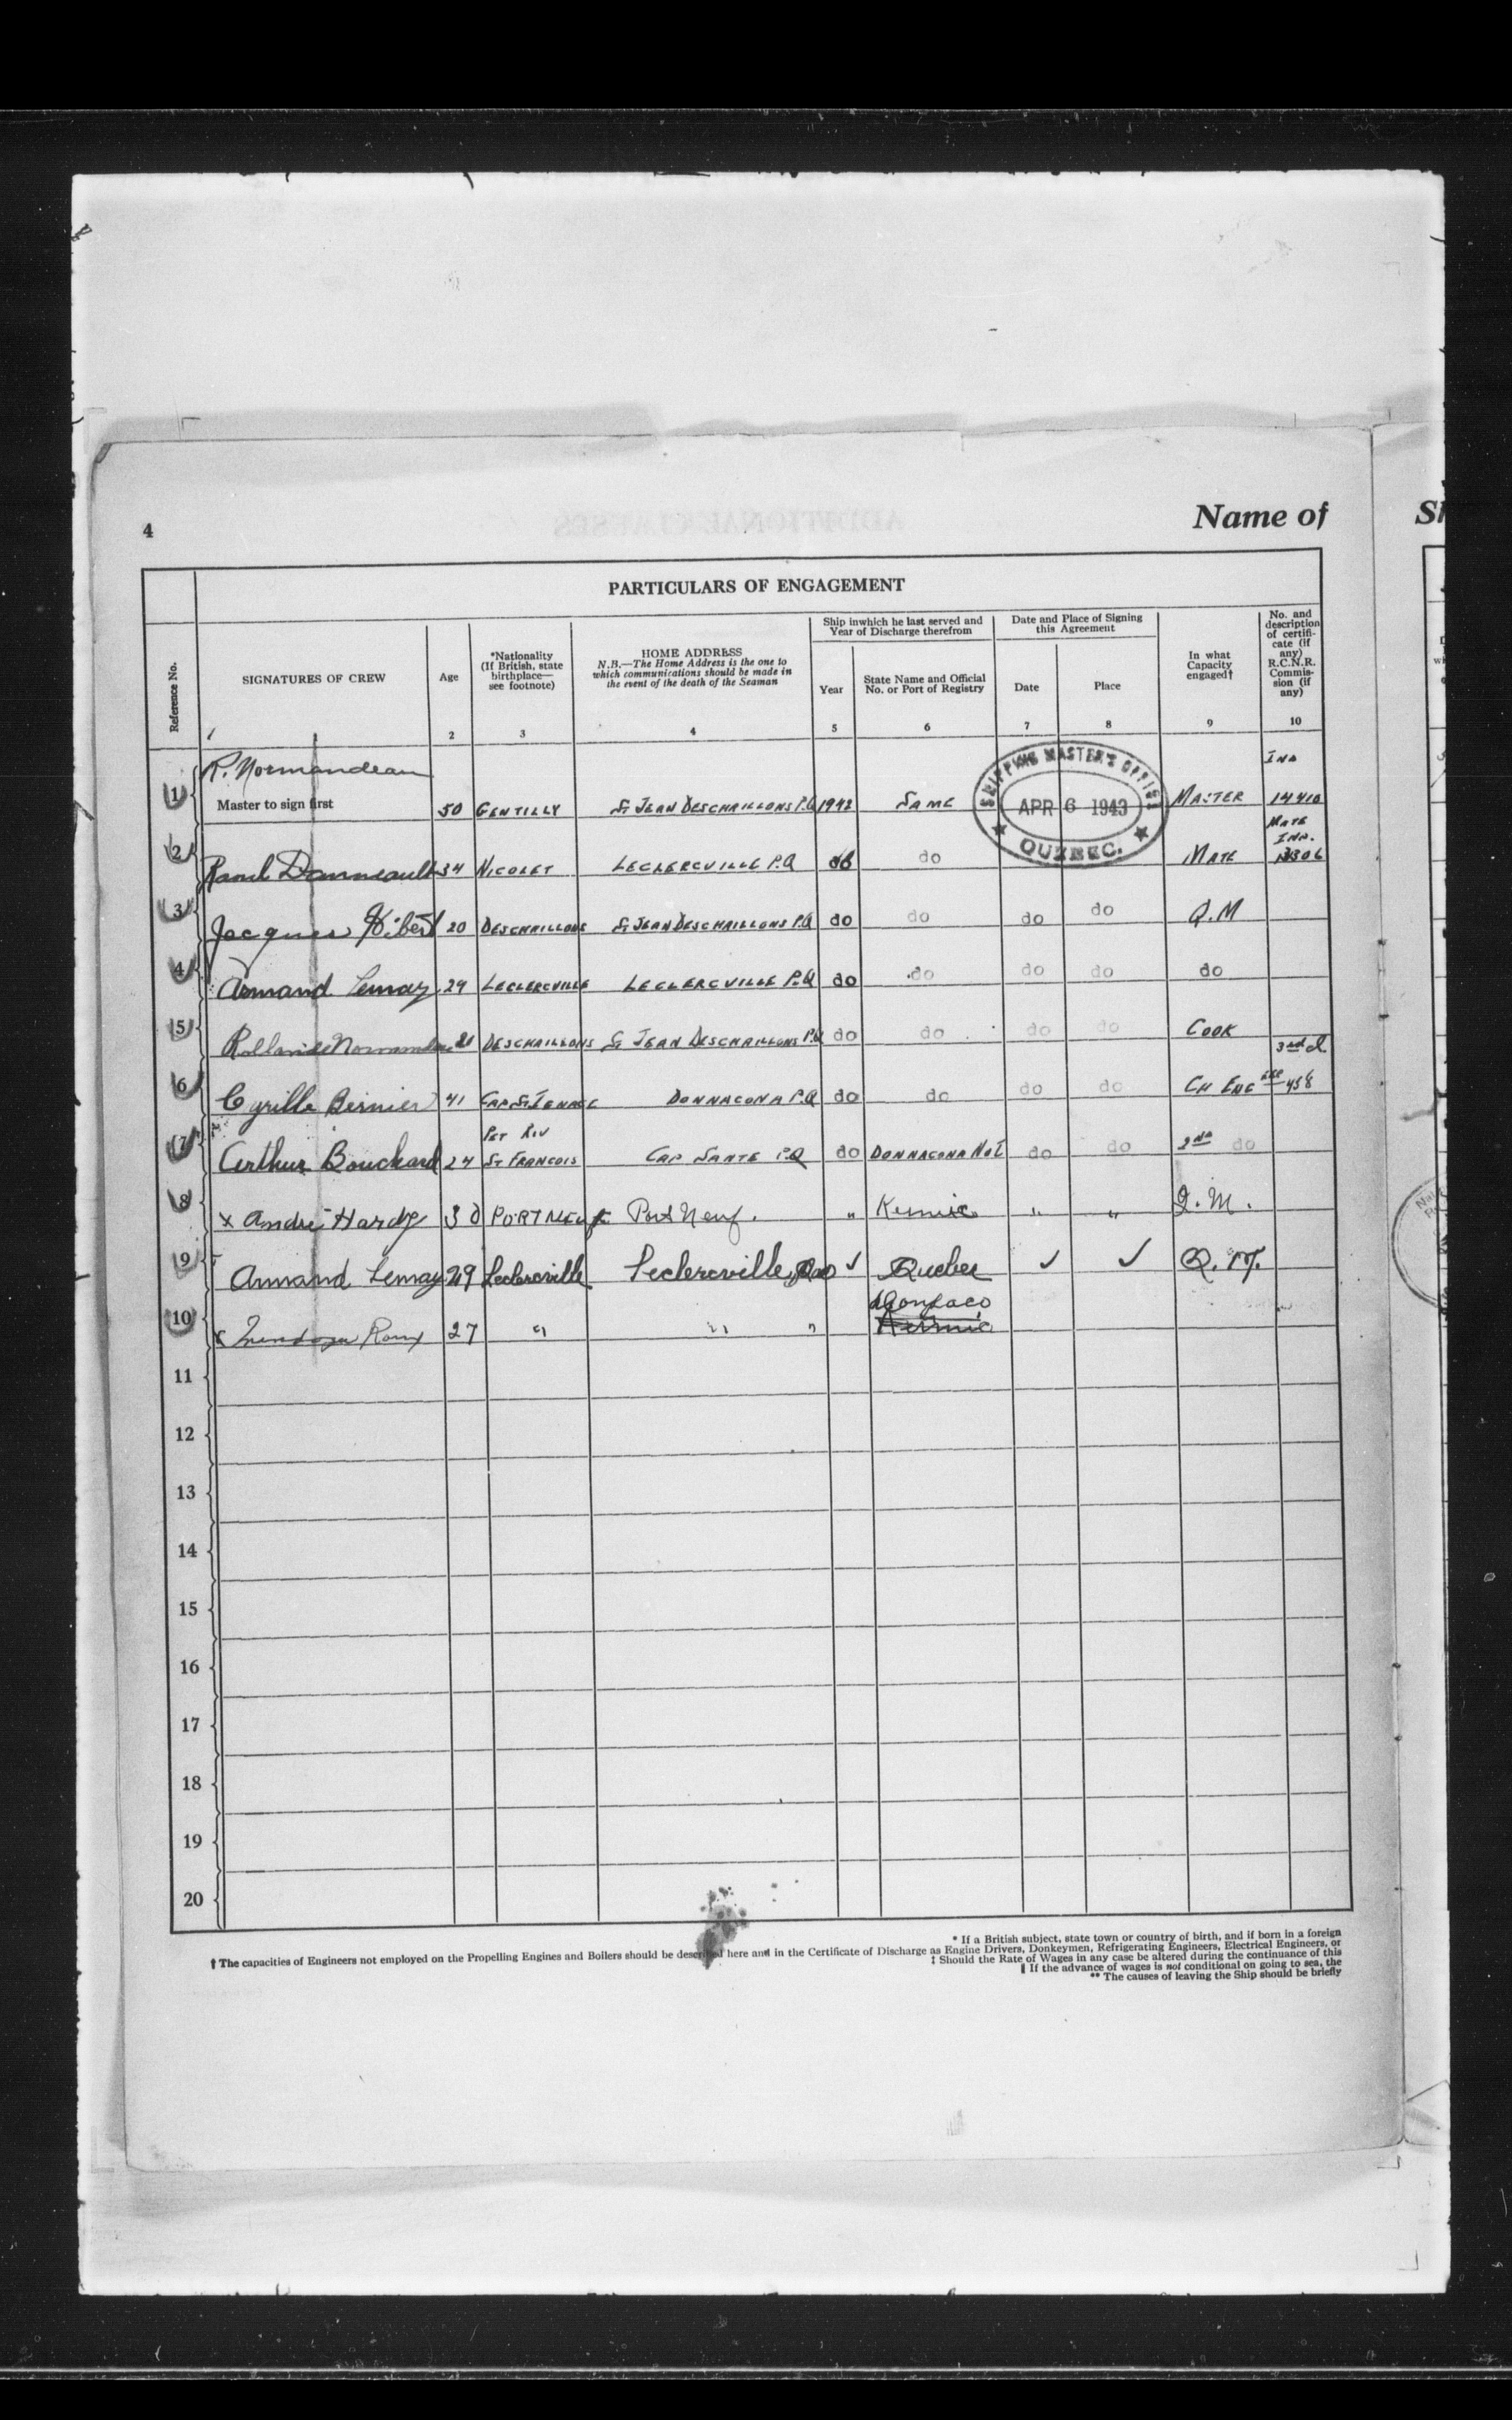 4
Name of
PARTICULARS OF ENGAGEMENT
Reference No.
SIGNATURES OF CREW
Age
*Nationality
(If British, state
birthplace—
see footnote)
HOME ADDRESS
N.B.—The Home Address is the one to
which communications should be made in
the event of the death of the Seaman
Ship inwhich he last served and
Year of Discharge therefrom
Year
State Name and Official
No. or Port of Registry
Date and Place of Signing
this Agreement
Date
Place
In what
Capacity
engaged†
No. and
description
of certifi-
cate (if
any)
R.C.N.R.
Commis-
sion (if
any)
1 2 3 4 5 6 7 8 9 10
SHIPPING MASTER'S OFFICE
APR 6 1943
QUEBEC.
R. Normandeau
1 Master to sign first 50 GENTILLY St JEAN DESCHAILLONS P.Q 1942 SAME MASTER 14410
MATE
2 Raoul Danneault 34 NICOLET LECLERCVILLE P.Q do do MATE
3 Jacques 20 DESCHAILLONS St JEAN DESCHAILLONS P.Q do do do do Q.M
4 Armand Lemay 29 LECLERCVILLE LECLERCVILLE P.Q do do do do do
5 21 DESCHAILLONS St JEAN DESCHAILLONS P.Q do do do do COOK
3rd cl
6 Cyrille Bernier 41 DONNACONA P.Q do do do do CH ENG
PET RIV
7 Arthur Bouchard 24 St FRANCOIS CAP SANTE P.Q do DONNACONA No 1 do do 2nd do
8 x André Hardy 30 PORTNEUF Port Neuf. " " " Q.M.
9 Armand Lemay 29 Leclercville Leclercville ✓ Quebec ✓ ✓ Q.M.
10 x 27 " " "
11
12
13
14
15
16
17
18
19
20
* If a British subject, state town or country of birth, and if born in a foreign
† The capacities of Engineers not employed on the Propelling Engines and Boilers should be described here and in the Certificate of Discharge as Engine Drivers, Donkeymen, Refrigerating Engineers, Electrical Engineers, or
‡ Should the Rate of Wages in any case be altered during the continuance of this
‖ If the advance of wages is not conditional on going to sea, the
** The causes of leaving the Ship should be briefly